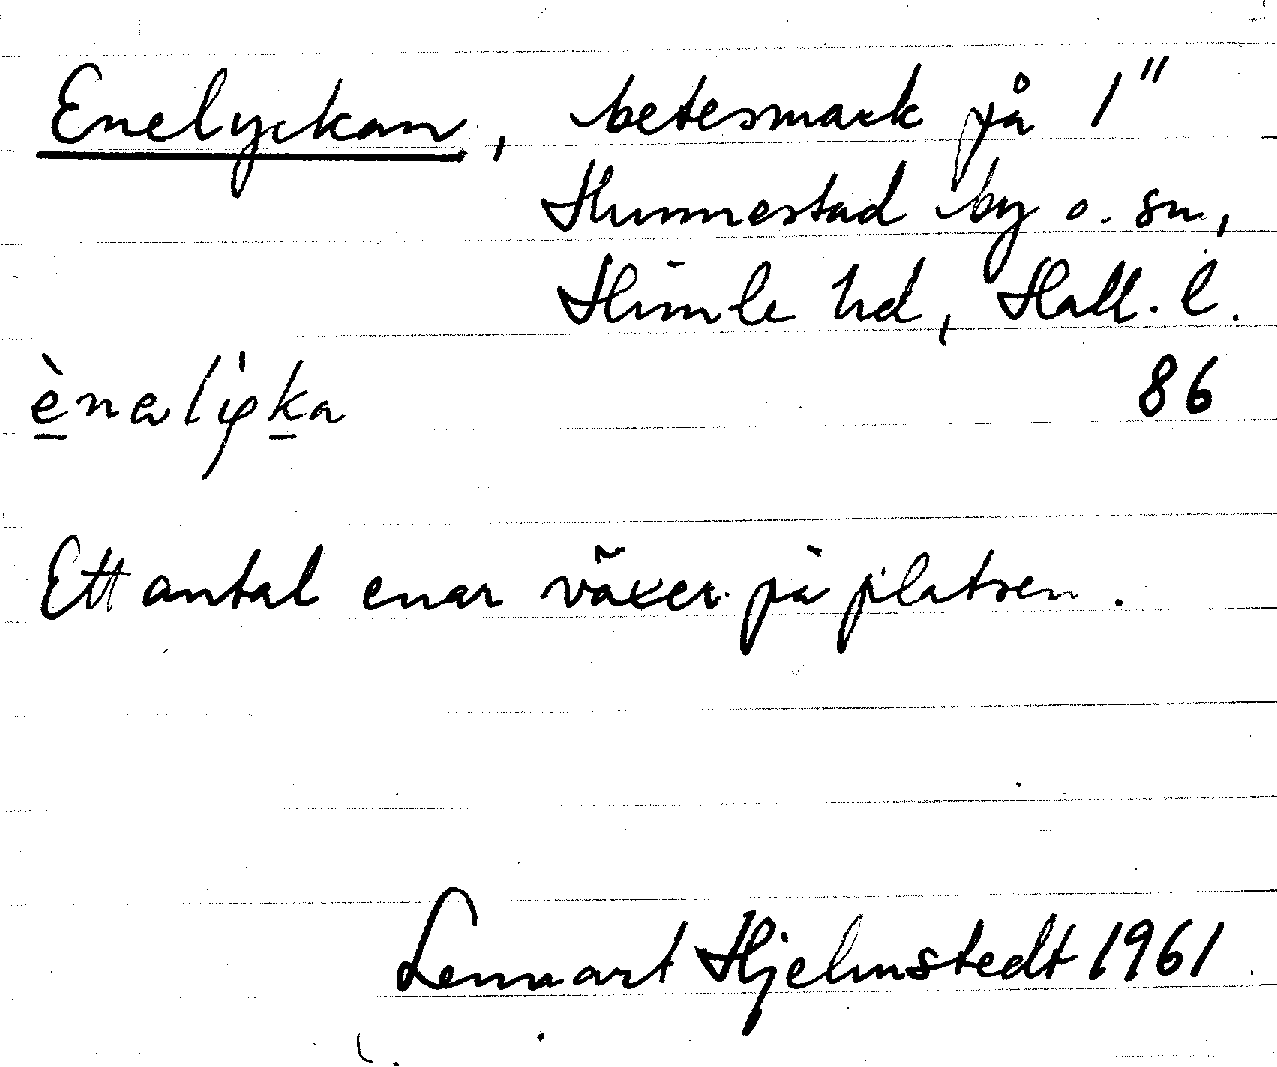 Enelyckan, betesmark på 1"
Hunnestad by o. sn,
Himle hd, Hall. l.
86
Ett antal enar växer på platsen.
Lennart Hjelmstedt 1961